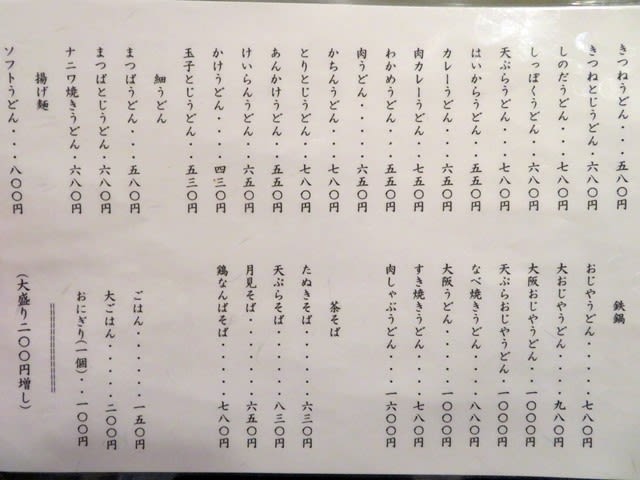 きつねうどん・・・五八〇円
きつねとじうどん・六八〇円
しのだうどん・・・七八〇円
しっぽくうどん・・六八〇円
天ぷらうどん・・・七八〇円
はいからうどん・・五五〇円
カレーうどん・・・六五〇円
肉カレーうどん・・七五〇円
わかめうどん・・・五五〇円
肉うどん・・・・・六五〇円
かちんうどん・・・七八〇円
とりとじうどん・・七八〇円
あんかけうどん・・五五〇円
けいらんうどん・・六五〇円
かけうどん・・・・四三〇円
玉子とじうどん・・五三〇円
細うどん
まつばうどん・・・五八〇円
まつばとじうどん・六八〇円
ナニワ焼きうどん・六八〇円
揚げ麺
ソフトうどん・・・八〇〇円
鉄鍋
おじやうどん・・・・・七八〇円
大おじやうどん・・・・九八〇円
大阪おじやうどん・・一〇〇〇円
天ぷらおじやうどん・一〇〇〇円
なべ焼きうどん・・・・八八〇円
大阪うどん・・・・・一〇〇〇円
すき焼きうどん・・・・七八〇円
肉しゃぶうどん・・・一六〇〇円
茶そば
たぬきそば・・・・・・六三〇円
天ぷらそば・・・・・・八三〇円
月見そば・・・・・・・六五〇円
鶏なんばそば・・・・・七八〇円
ごはん・・・・・・一五〇円
大ごはん・・・・・二〇〇円
おにぎり(一個)・・一〇〇円
(大盛り二〇〇円増し)